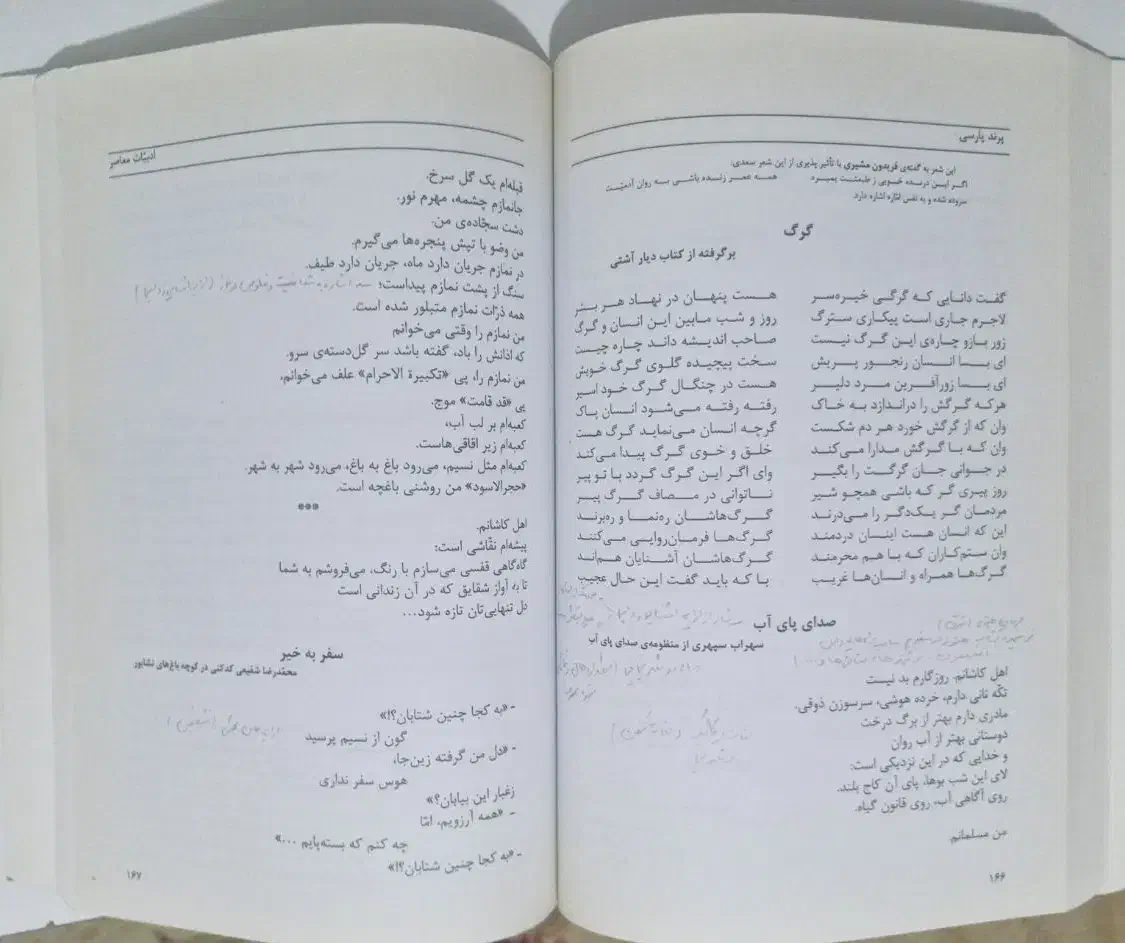 پرند پارسی
این شعر به گفته‌ی فریدون مشیری با تأثیر پذیری از این شعر سعدی:
اگر این درنده خویی ز طبیعتت بمیرد همه عمر زنده باشی به روان آدمیّت
سروده شده و به نفس امّاره اشاره دارد.
گرگ
برگرفته از کتاب دیار آشتی
گفت دانایی که گرگی خیره‌سر هست پنهان در نهاد هر بشر
لاجرم جاری است پیکاری سترگ روز و شب مابین این انسان و گرگ
زور بازو چاره‌ی این گرگ نیست صاحب اندیشه داند چاره چیست
ای بسا انسان رنجور پریش سخت پیچیده گلوی گرگ خویش
ای بسا زورآفرین مرد دلیر هست در چنگال گرگ خود اسیر
هرکه گرگش را دراندازد به خاک رفته رفته می‌شود انسان پاک
وان که از گرگش خورد هر دم شکست گرچه انسان می‌نماید گرگ هست
وان که با گرگش مدارا می‌کند خلق و خوی گرگ پیدا می‌کند
در جوانی جان گرگت را بگیر وای اگر این گرگ گردد با تو پیر
روز پیری گر که باشی همچو شیر ناتوانی در مصاف گرگ پیر
مردمان گر یک‌دگر را می‌درند گرگ‌هاشان ره‌نما و ره‌برند
این که انسان هست اینسان دردمند گرگ‌ها فرمان‌روایی می‌کنند
وان ستم‌کاران که با هم محرمند گرگ‌هاشان آشنایان هم‌اند
گرگ‌ها همراه و انسان‌ها غریب با که باید گفت این حال عجیب
صدای پای آب
سهراب سپهری از منظومه‌ی صدای پای آب
اهل کاشانم. روزگارم بد نیست
تکّه نانی دارم، خرده هوشی، سرسوزن ذوقی.
مادری دارم بهتر از برگ درخت
دوستانی بهتر از آب روان
و خدایی که در این نزدیکی است:
لای این شب بوها، پای آن کاج بلند.
روی آگاهی آب، روی قانون گیاه.
من مسلمانم
۱۶۶
ادبیّات معاصر
قبله‌ام یک گل سرخ.
جانمازم چشمه، مهرم نور.
دشت سجّاده‌ی من.
من وضو با تپش پنجره‌ها می‌گیرم.
در نمازم جریان دارد ماه، جریان دارد طیف.
سنگ از پشت نمازم پیداست؛
همه ذرّات نمازم متبلور شده است.
من نمازم را وقتی می‌خوانم
که اذانش را باد، گفته باشد سر گل‌دسته‌ی سرو.
من نمازم را، پی «تکبیرة الاحرام» علف می‌خوانم،
پی «قد قامت» موج.
کعبه‌ام بر لب آب،
کعبه‌ام زیر اقاقی‌هاست.
کعبه‌ام مثل نسیم، می‌رود باغ به باغ، می‌رود شهر به شهر.
«حجرالاسود» من روشنی باغچه است.
***
اهل کاشانم.
پیشه‌ام نقّاشی است:
گاه‌گاهی قفسی می‌سازم با رنگ، می‌فروشم به شما
تا به آواز شقایق که در آن زندانی است
دل تنهایی‌تان تازه شود...
سفر به خیر
محمّدرضا شفیعی کدکنی در کوچه باغ‌های نشابور
- «به کجا چنین شتابان؟!»
گون از نسیم پرسید
- «دل من گرفته زین‌جا،
هوس سفر نداری
زغبار این بیابان؟»
- «همه آرزویم، امّا
چه کنم که بسته‌پایم ...»
- «به کجا چنین شتابان؟!»
۱۶۷